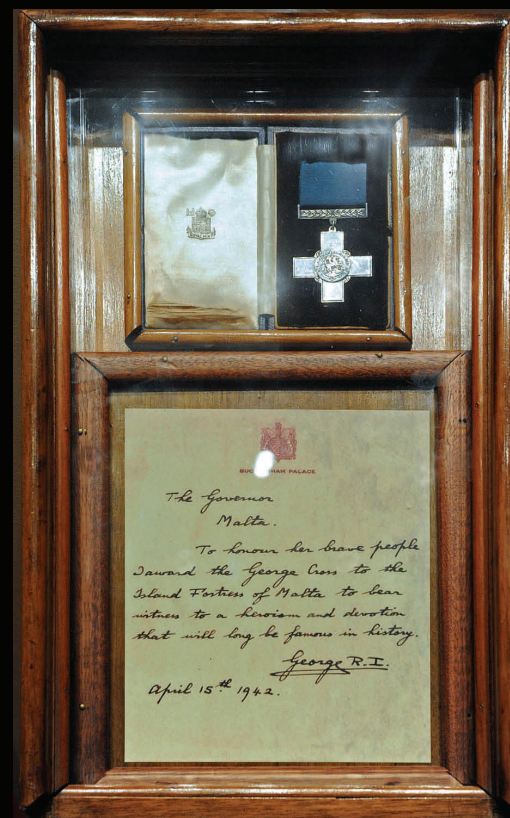 BUC HAM PALACE
The Governor
Malta.
To honour her brave people
I award the George Cross to the
Island Fortress of Malta to bear
witness to a heroism and devotion
that will long be famous in history.
George R.I.
April 15th 1942.